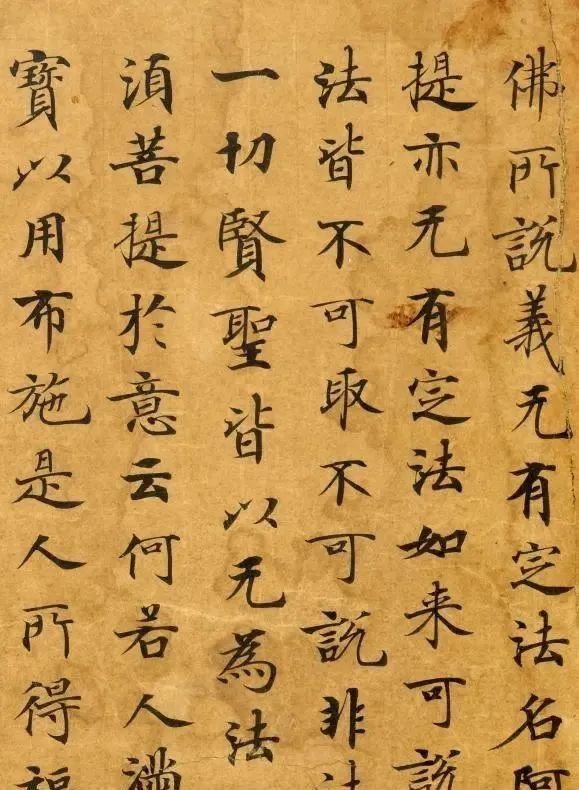 佛所說義无有定法名阿
提亦无有定法如来可說
法皆不可取不可說非法
一切賢聖皆以无為法
須菩提於意云何若人滿
寶以用布施是人所得福